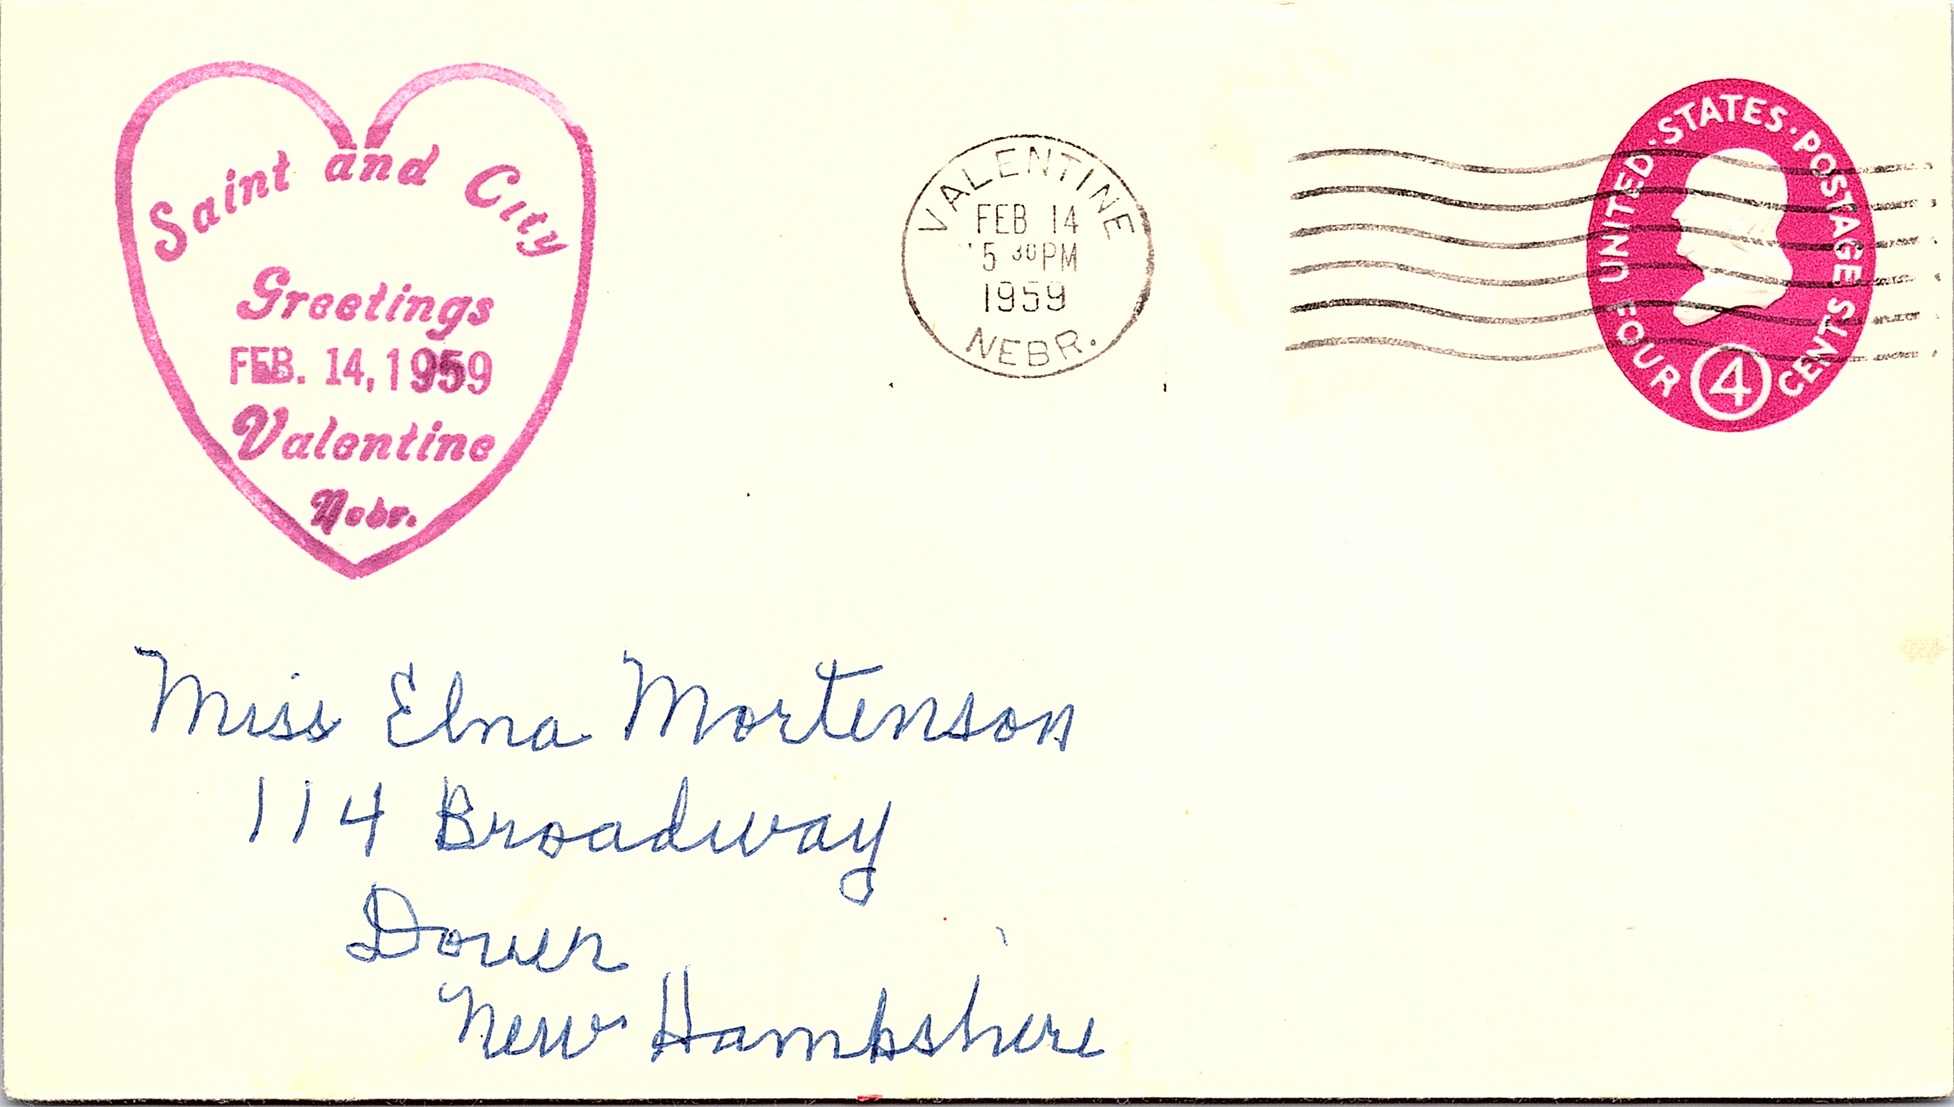 Saint and City
Greetings
FEB. 14, 1959
Valentine
Nebr.
VALENTINE
FEB 14
5 30 PM
1959
NEBR.
UNITED · STATES · POSTAGE
FOUR CENTS
4
Miss Elna Mortenson
114 Broadway
Dover
New Hampshire